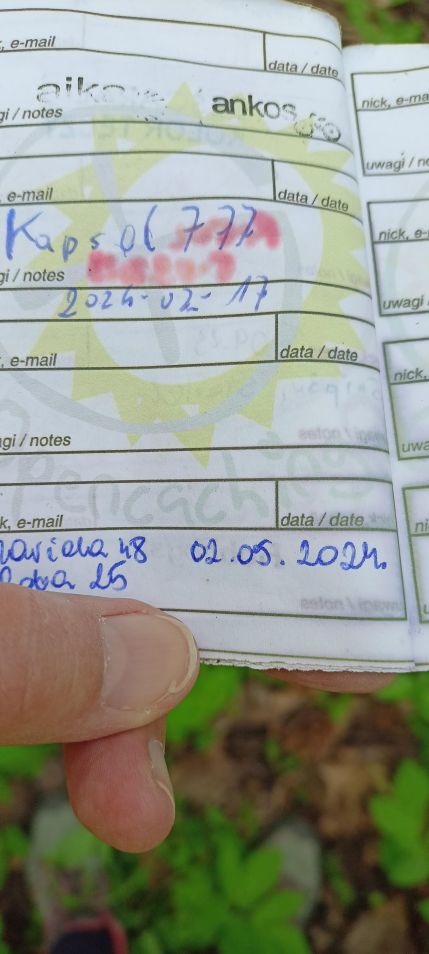 , e-mail
data / date
nick, e-ma
ankos
gi / notes
uwagi / no
, e-mail
data / date
nick, e-
Kapsel 777
gi / notes
uwagi /
2024-02-17
, e-mail
data / date
nick,
agi / notes
uwa
opencaching
k, e-mail
data / date
ni
48 02.05.2024.
25